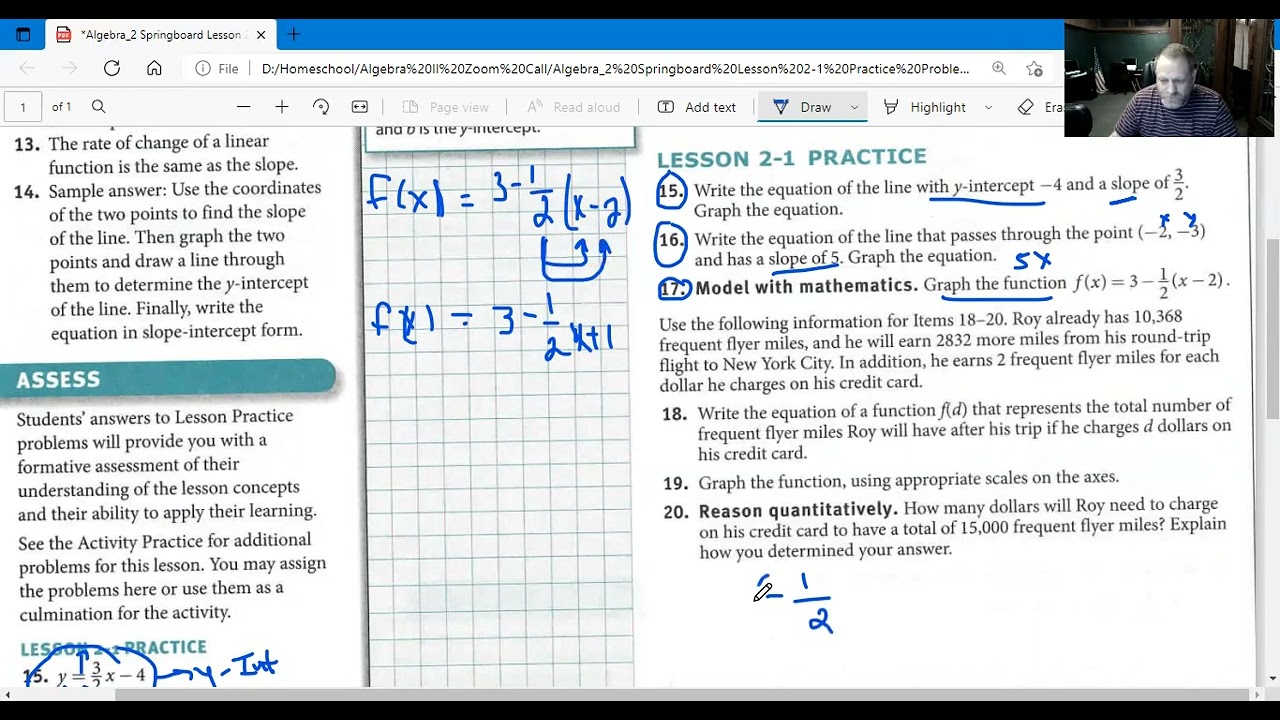 *Algebra_2 Springboard Lesson
File
D:/Homeschool/Algebra%20II%20Zoom%20Call/Algebra_2%20Springboard%20Lesson%202-1%20Practice%20Proble...
1 of 1
Page view
Read aloud
Add text
Draw
Highlight
13. The rate of change of a linear
function is the same as the slope.
14. Sample answer: Use the coordinates
of the two points to find the slope
of the line. Then graph the two
points and draw a line through
them to determine the y-intercept
of the line. Finally, write the
equation in slope-intercept form.
ASSESS
Students' answers to Lesson Practice
problems will provide you with a
formative assessment of their
understanding of the lesson concepts
and their ability to apply their learning.
See the Activity Practice for additional
problems for this lesson. You may assign
the problems here or use them as a
culmination for the activity.
LESSON 2-1 PRACTICE
15. y = 3/2 x − 4
y-Int
and b is the y-intercept.
f(x) = 3 - 1/2 (x-2)
f(x) = 3 - 1/2 x+1
LESSON 2-1 PRACTICE
15. Write the equation of the line with y-intercept −4 and a slope of 3/2.
Graph the equation.
16. Write the equation of the line that passes through the point (−2, −3)
and has a slope of 5. Graph the equation.
5x
17. Model with mathematics. Graph the function f(x) = 3 − 1/2(x − 2).
Use the following information for Items 18–20. Roy already has 10,368
frequent flyer miles, and he will earn 2832 more miles from his round-trip
flight to New York City. In addition, he earns 2 frequent flyer miles for each
dollar he charges on his credit card.
18. Write the equation of a function f(d) that represents the total number of
frequent flyer miles Roy will have after his trip if he charges d dollars on
his credit card.
19. Graph the function, using appropriate scales on the axes.
20. Reason quantitatively. How many dollars will Roy need to charge
on his credit card to have a total of 15,000 frequent flyer miles? Explain
how you determined your answer.
1/2